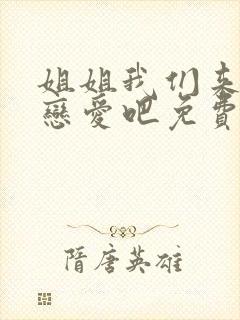 姐姐我们来
戀愛吧免費
隋唐英雄